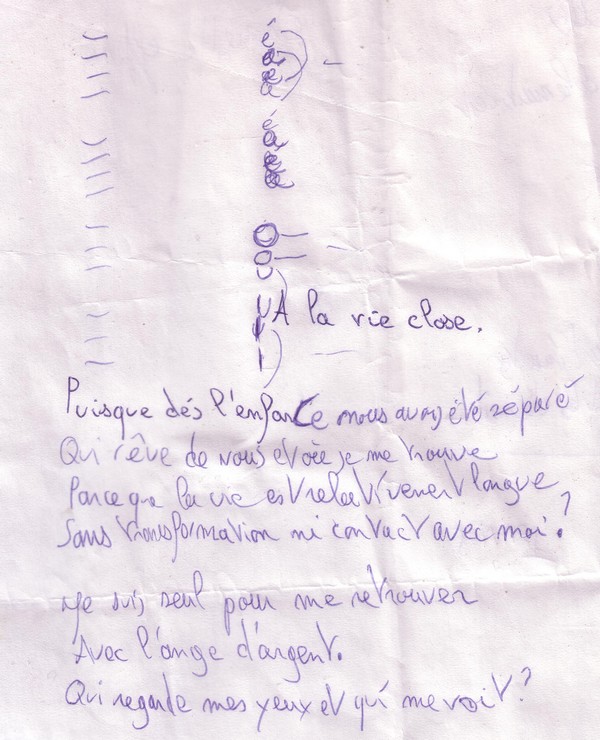 A la vie close.
Puisque dés l'enfance nous avons été séparé
Qui rêve de nous et où je me trouve
Parce que la vie est relativement longue
Sans transformation ni contact avec moi ?
Je suis seul pour me retrouver
Avec l'ange d'argent.
Qui regarde mes yeux et qui me voit ?